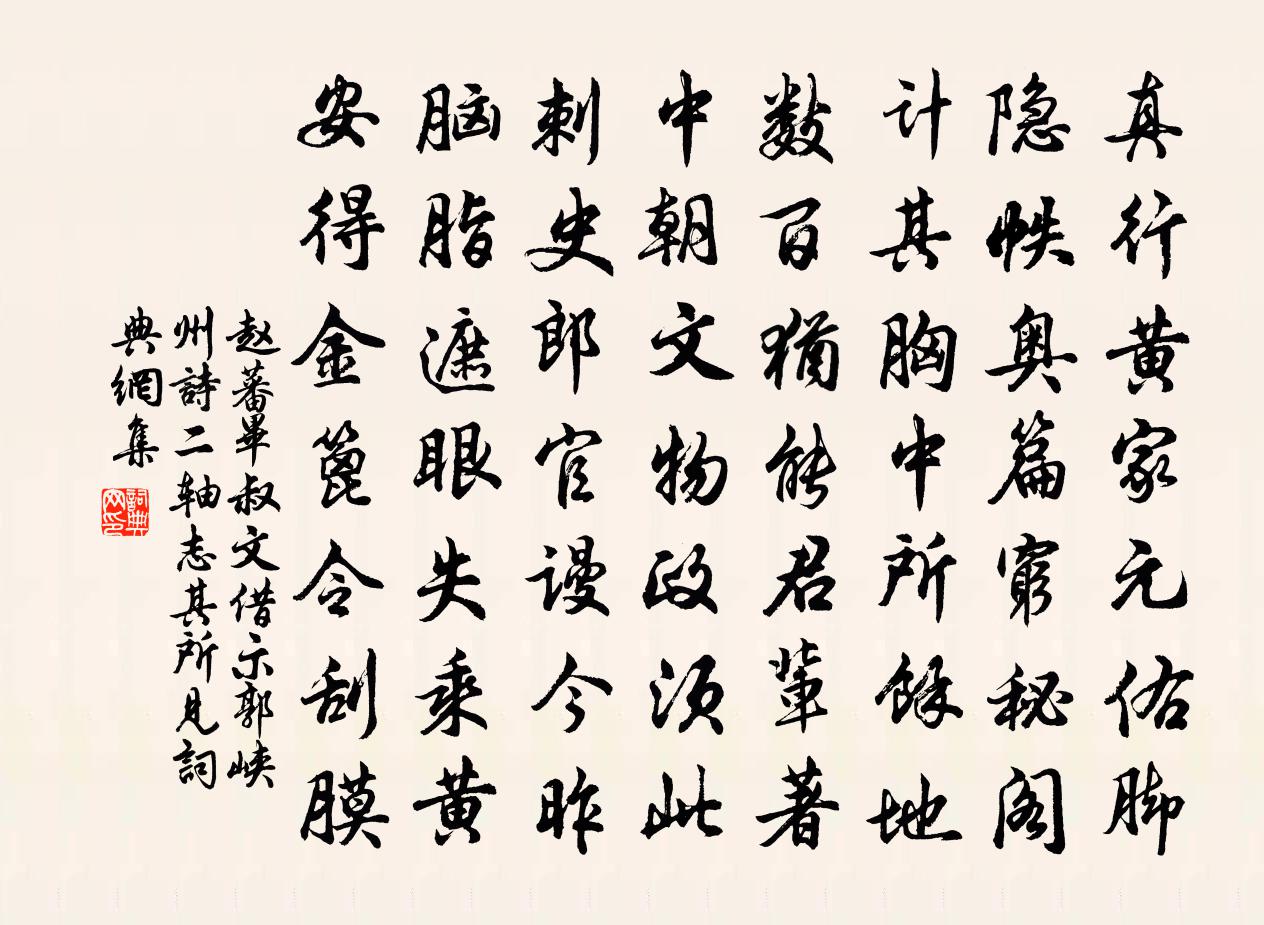 真行黄家元佑脚
隐帙奥篇窮秘阁
计其胸中所餘地
数百猶能君輩著
中朝文物政须此
刺史郎官谩今昨
脑脂遮眼失乘黄
安得金篦令刮膜
赵蕃畢叔文借示郭峡
州詩二轴志其所見詞
典網集
詞典网印